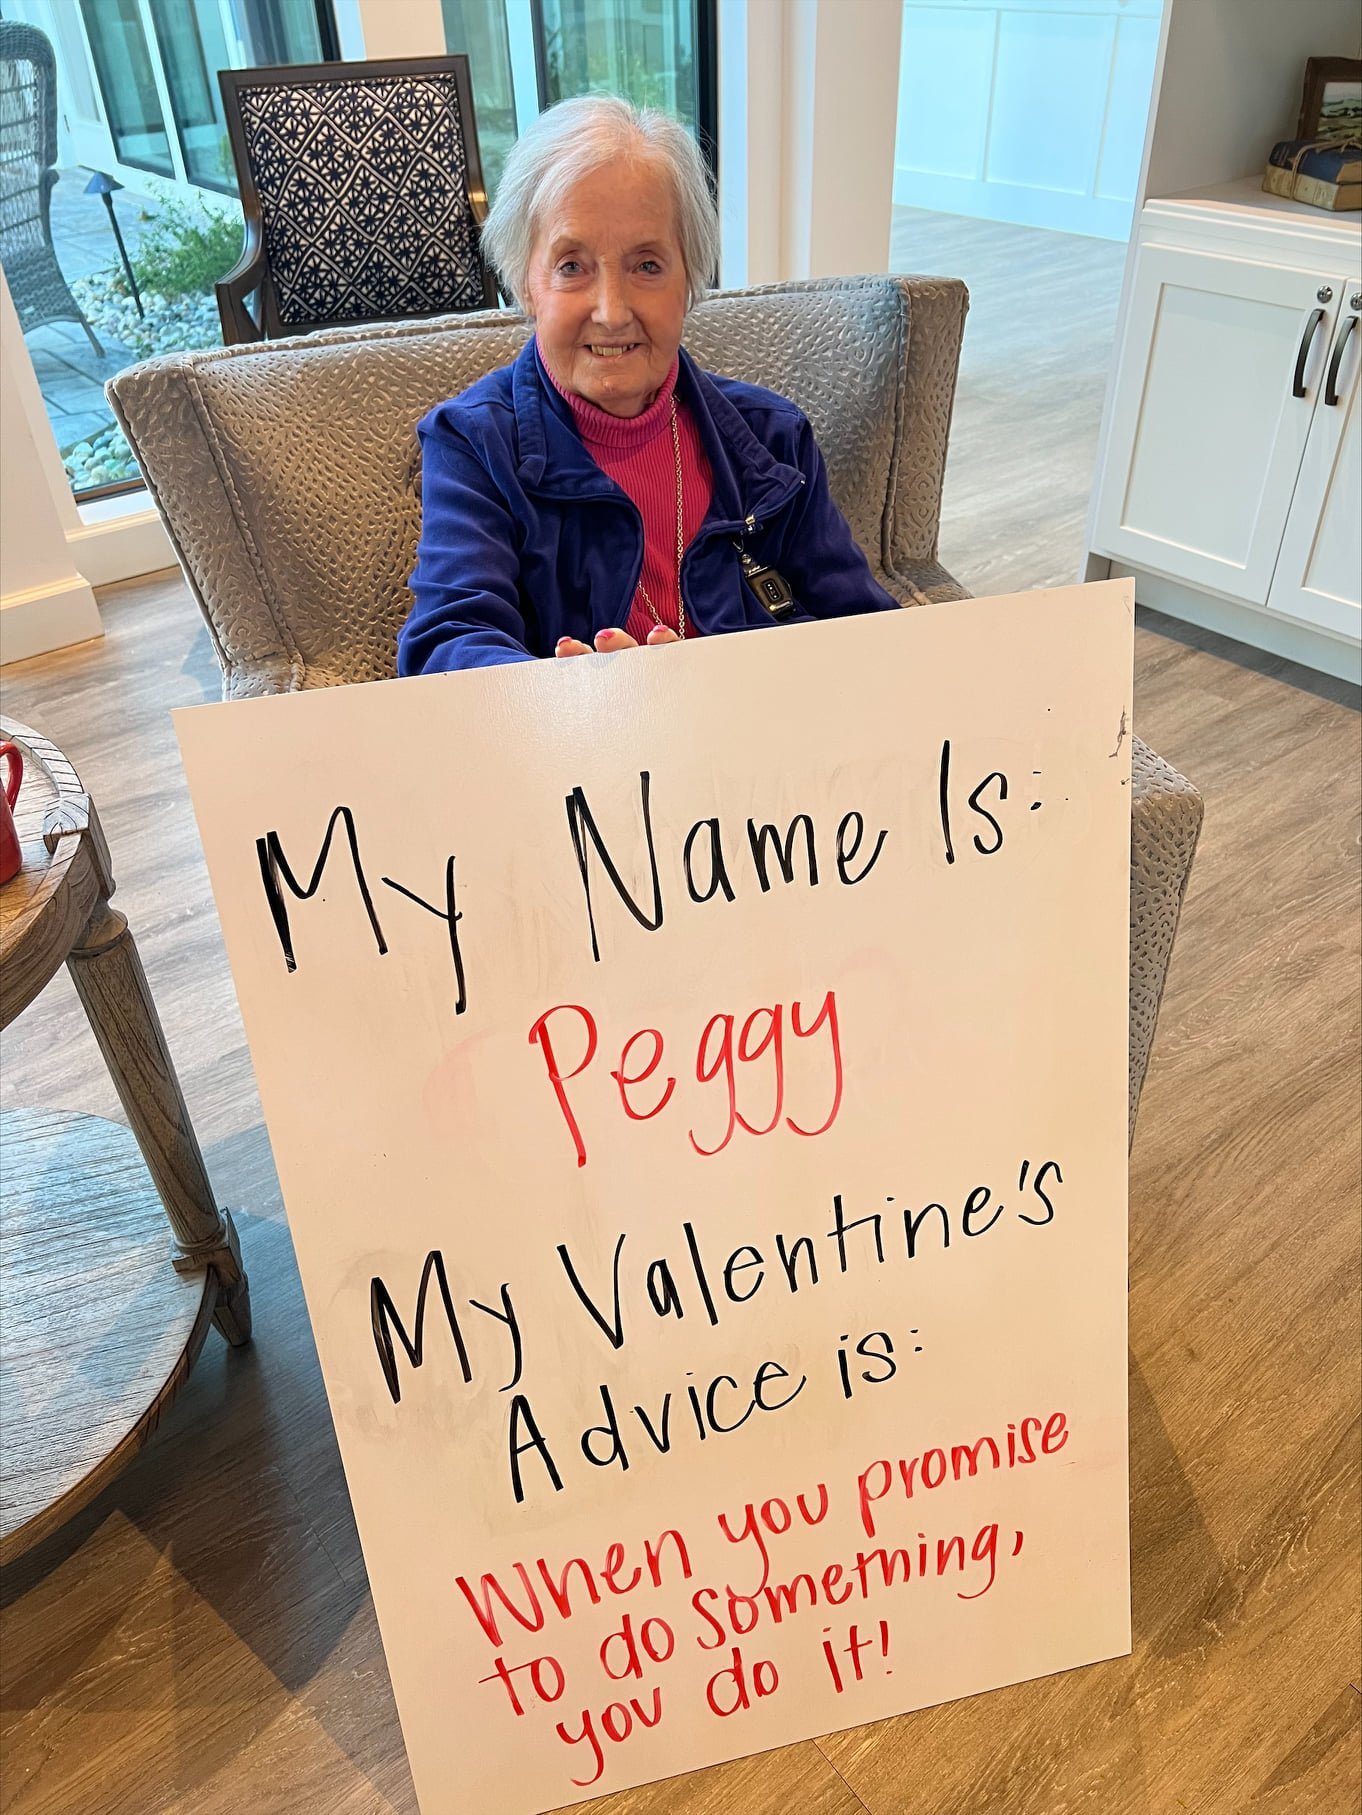 My Name Is:
Peggy
My Valentine's
Advice is:
When you promise
to do something,
you do it!